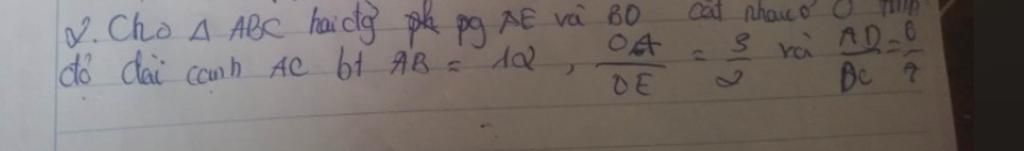 2. Cho Δ ABC hai đg ph pg AE và BD cắt nhau ở O tính
độ dài cạnh AC bt AB = 12, OA/OE = 3/2 và AD/DC = 6/7